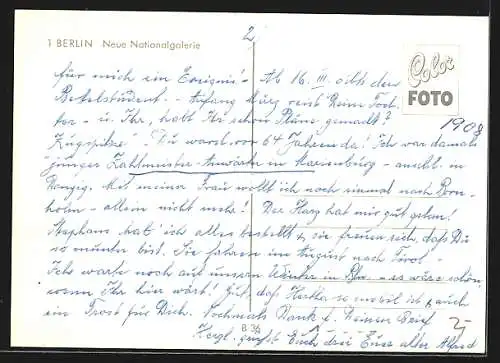 1 BERLIN Neue Nationalgalerie
2
Color
FOTO
1908
für mich ein Ereignis! - Ab 16. III. der
Bettelstudent. - Anfang März Deine Toch-
ter - u. Ihr, habt Ihr schon Pläne gemacht?
Zugspitze? Du warst vor 64 Jahren da! Ich war damals
junger Zahlmeister-Anwärter in Marienburg - anschl. in
Danzig. Mit meiner Frau wollt ich noch einmal nach Born-
holm - allein nicht mehr! Der Harz hat mir gut getan!
Stephans hat ich alles bestellt & sie freuen sich, daß Du
so munter bist. Sie fahren im August nach Tirol -
Ich warte noch auf unseren in Bln - es wäre schön,
wenn Ihr hier wärt! Gut, daß Hertha so mobil ist & auch
ein Trost für Dich. Nochmals Dank f. Deinen Brief
Herzl. grüßt Euch drei Euer alter Alfred
B 36
2,-